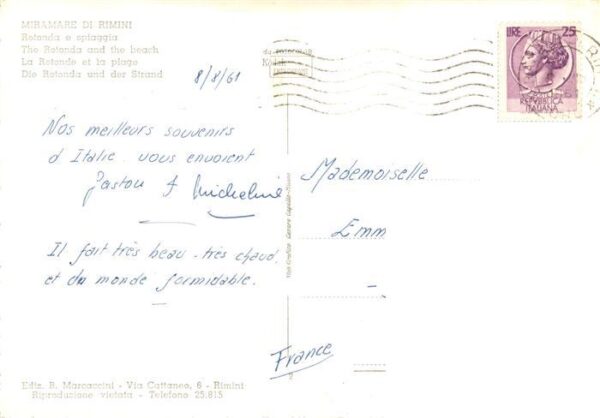 MIRAMARE DI RIMINI
Rotonda e spiaggia
The Rotonda and the beach
La Rotonde et la plage
Die Rotonda und der Strand
8/8/61
Kodak
LIRE 25
REPVBBLICA
ITALIANA
Nos meilleurs souvenirs
d'Italie vous envoient
Gaston & Micheline
Il fait très beau - très chaud
et du monde formidable.
Mademoiselle
Emm
France
Ediz. B. Marcaccini - Via Cattaneo, 6 - Rimini
Riproduzione vietata - Telefono 25.815